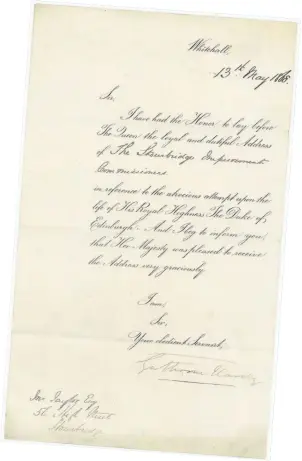 Whitehall.
13th May 1868.
Sir,
I have had the Honor to lay before
The Queen the loyal and dutiful Address
of The Stourbridge Improvement
Commissioners
in reference to the atrocious attempt upon the
life of His Royal Highness The Duke of
Edinburgh. And I beg to inform you
that Her Majesty was pleased to receive
the Address very graciously
I am,
Sir,
Your obedient Servant,
Gathorne Hardy
Esq
Street
Stourbridge